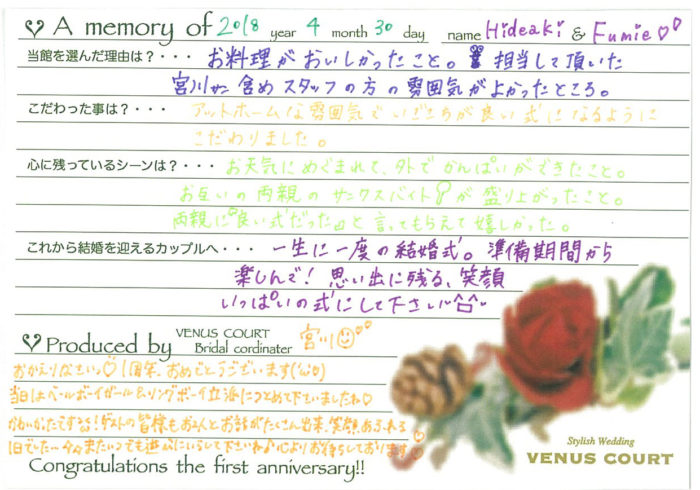 A memory of 2018 year 4 month 30 day name Hideaki & Fumie♡♡
当館を選んだ理由は？・・・お料理がおいしかったこと。担当して頂いた
宮川さん含めスタッフの方の雰囲気がよかったところ。
こだわった事は？・・・アットホームな雰囲気でいごこちが良い式になるように
こだわりました。
心に残っているシーンは？・・・お天気にめぐまれて、外でかんぱいができたこと。
お互いの両親のサンクスバイトが盛り上がったこと。
両親に『良い式だった』と言ってもらえて嬉しかった。
これから結婚を迎えるカップルへ・・・一生に一度の結婚式。準備期間から
楽しんで！思い出に残る、笑顔
いっぱいの式にして下さい
Produced by VENUS COURT Bridal cordinater 宮川
おかえりなさい♡1周年、おめでとうございます
当日はベールボーイガール&リングボーイ立派につとめて下さいましたね♡
かわいかったですね！ゲストの皆様もお2人とお話がたくさん出来、笑顔あふれる
1日でした…またいつでも遊びにいらして下さいね♪心よりお待ちしております♡
Congratulations the first anniversary!!
Stylish Wedding
VENUS COURT